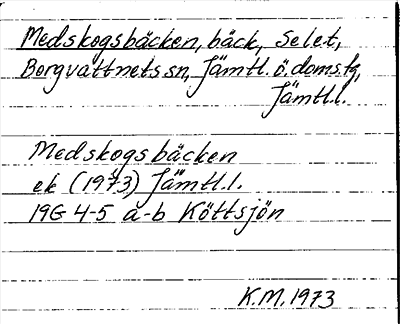 Medskogsbäcken, bäck, Selet,
Borgvattnets sn, Jämtl. ö. doms.fg,
Jämtl.l.
Medskogsbäcken
ek (1973) Jämtl.l.
19G 4-5 a-b Köttsjön
K.M. 1973